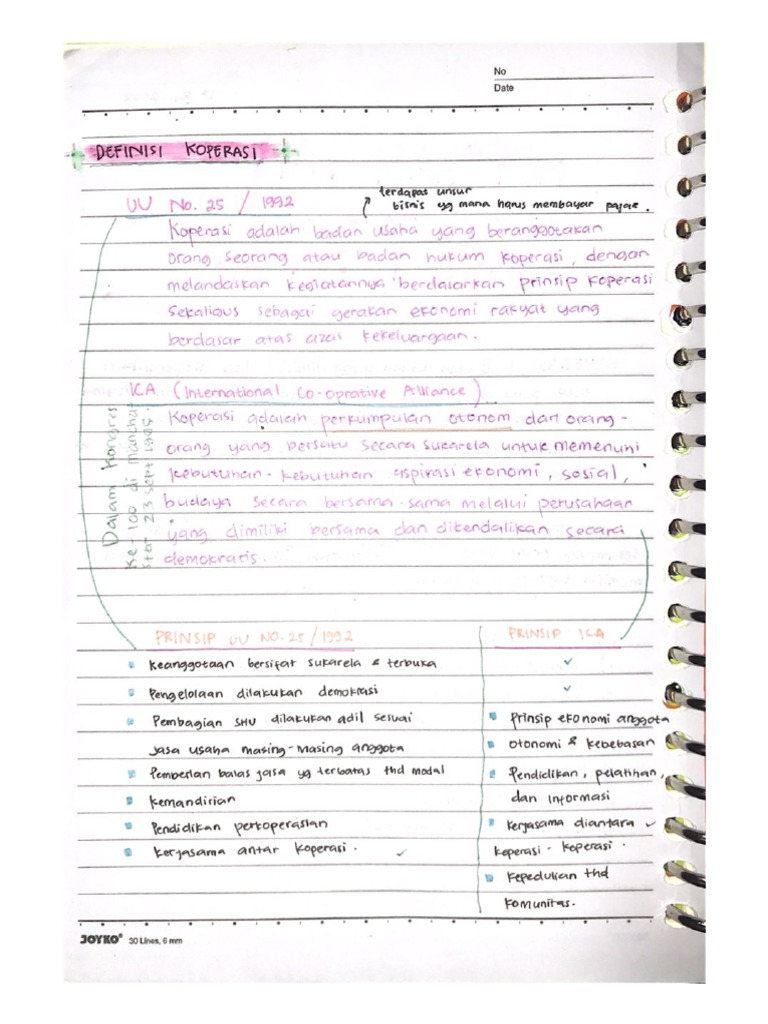 No
Date
DEFINISI KOPERASI
terdapat unsur
UU No. 25 / 1992
bisnis yg mana harus membayar pajak.
Koperasi adalah badan usaha yang beranggotakan
orang seorang atau badan hukum koperasi, dengan
melandaskan kegiatannya berdasarkan prinsip koperasi
sekaligus sebagai gerakan ekonomi rakyat yang
berdasar atas azas kekeluargaan.
ICA (International Co-oprative Alliance)
Koperasi adalah perkumpulan otonom dari orang-
orang yang bersatu secara sukarela untuk memenuhi
kebutuhan-kebutuhan aspirasi ekonomi, sosial,
budaya secara bersama-sama melalui perusahaan
yang dimiliki bersama dan dikendalikan secara
demokratis.
Dalam Kongres
ke-100 di manche
ster 23 sept 1995.
PRINSIP UU NO.25/1992
Keanggotaan bersifat sukarela & terbuka
Pengelolaan dilakukan demokrasi
Pembagian SHU dilakukan adil sesuai
jasa usaha masing-masing anggota
Pemberian balas jasa yg terbatas thd modal
Kemandirian
Pendidikan perkoperasian
Kerjasama antar koperasi. ✓
PRINSIP ICA
✓
✓
Prinsip ekonomi anggota
Otonomi & kebebasan
Pendidikan, pelatihan,
dan informasi
Kerjasama diantara ✓
koperasi-koperasi.
Kepedulian thd
komunitas.
JOYKO® 30 Lines, 6 mm